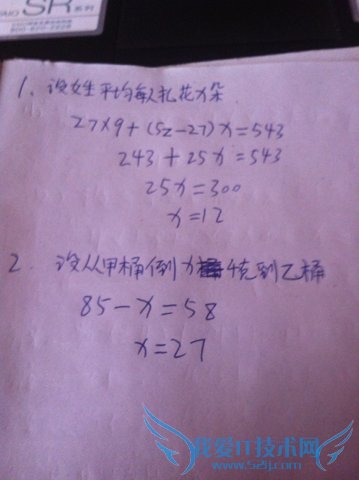 SR系列
800-820-2228
1. 设女生平均每人扎花x朵
27×9+(52-27)x=543
243+25x=543
25x=300
x=12
2. 设从甲桶倒x千克到乙桶
85-x=58
x=27
我爱IT技术网
www.52ij.com